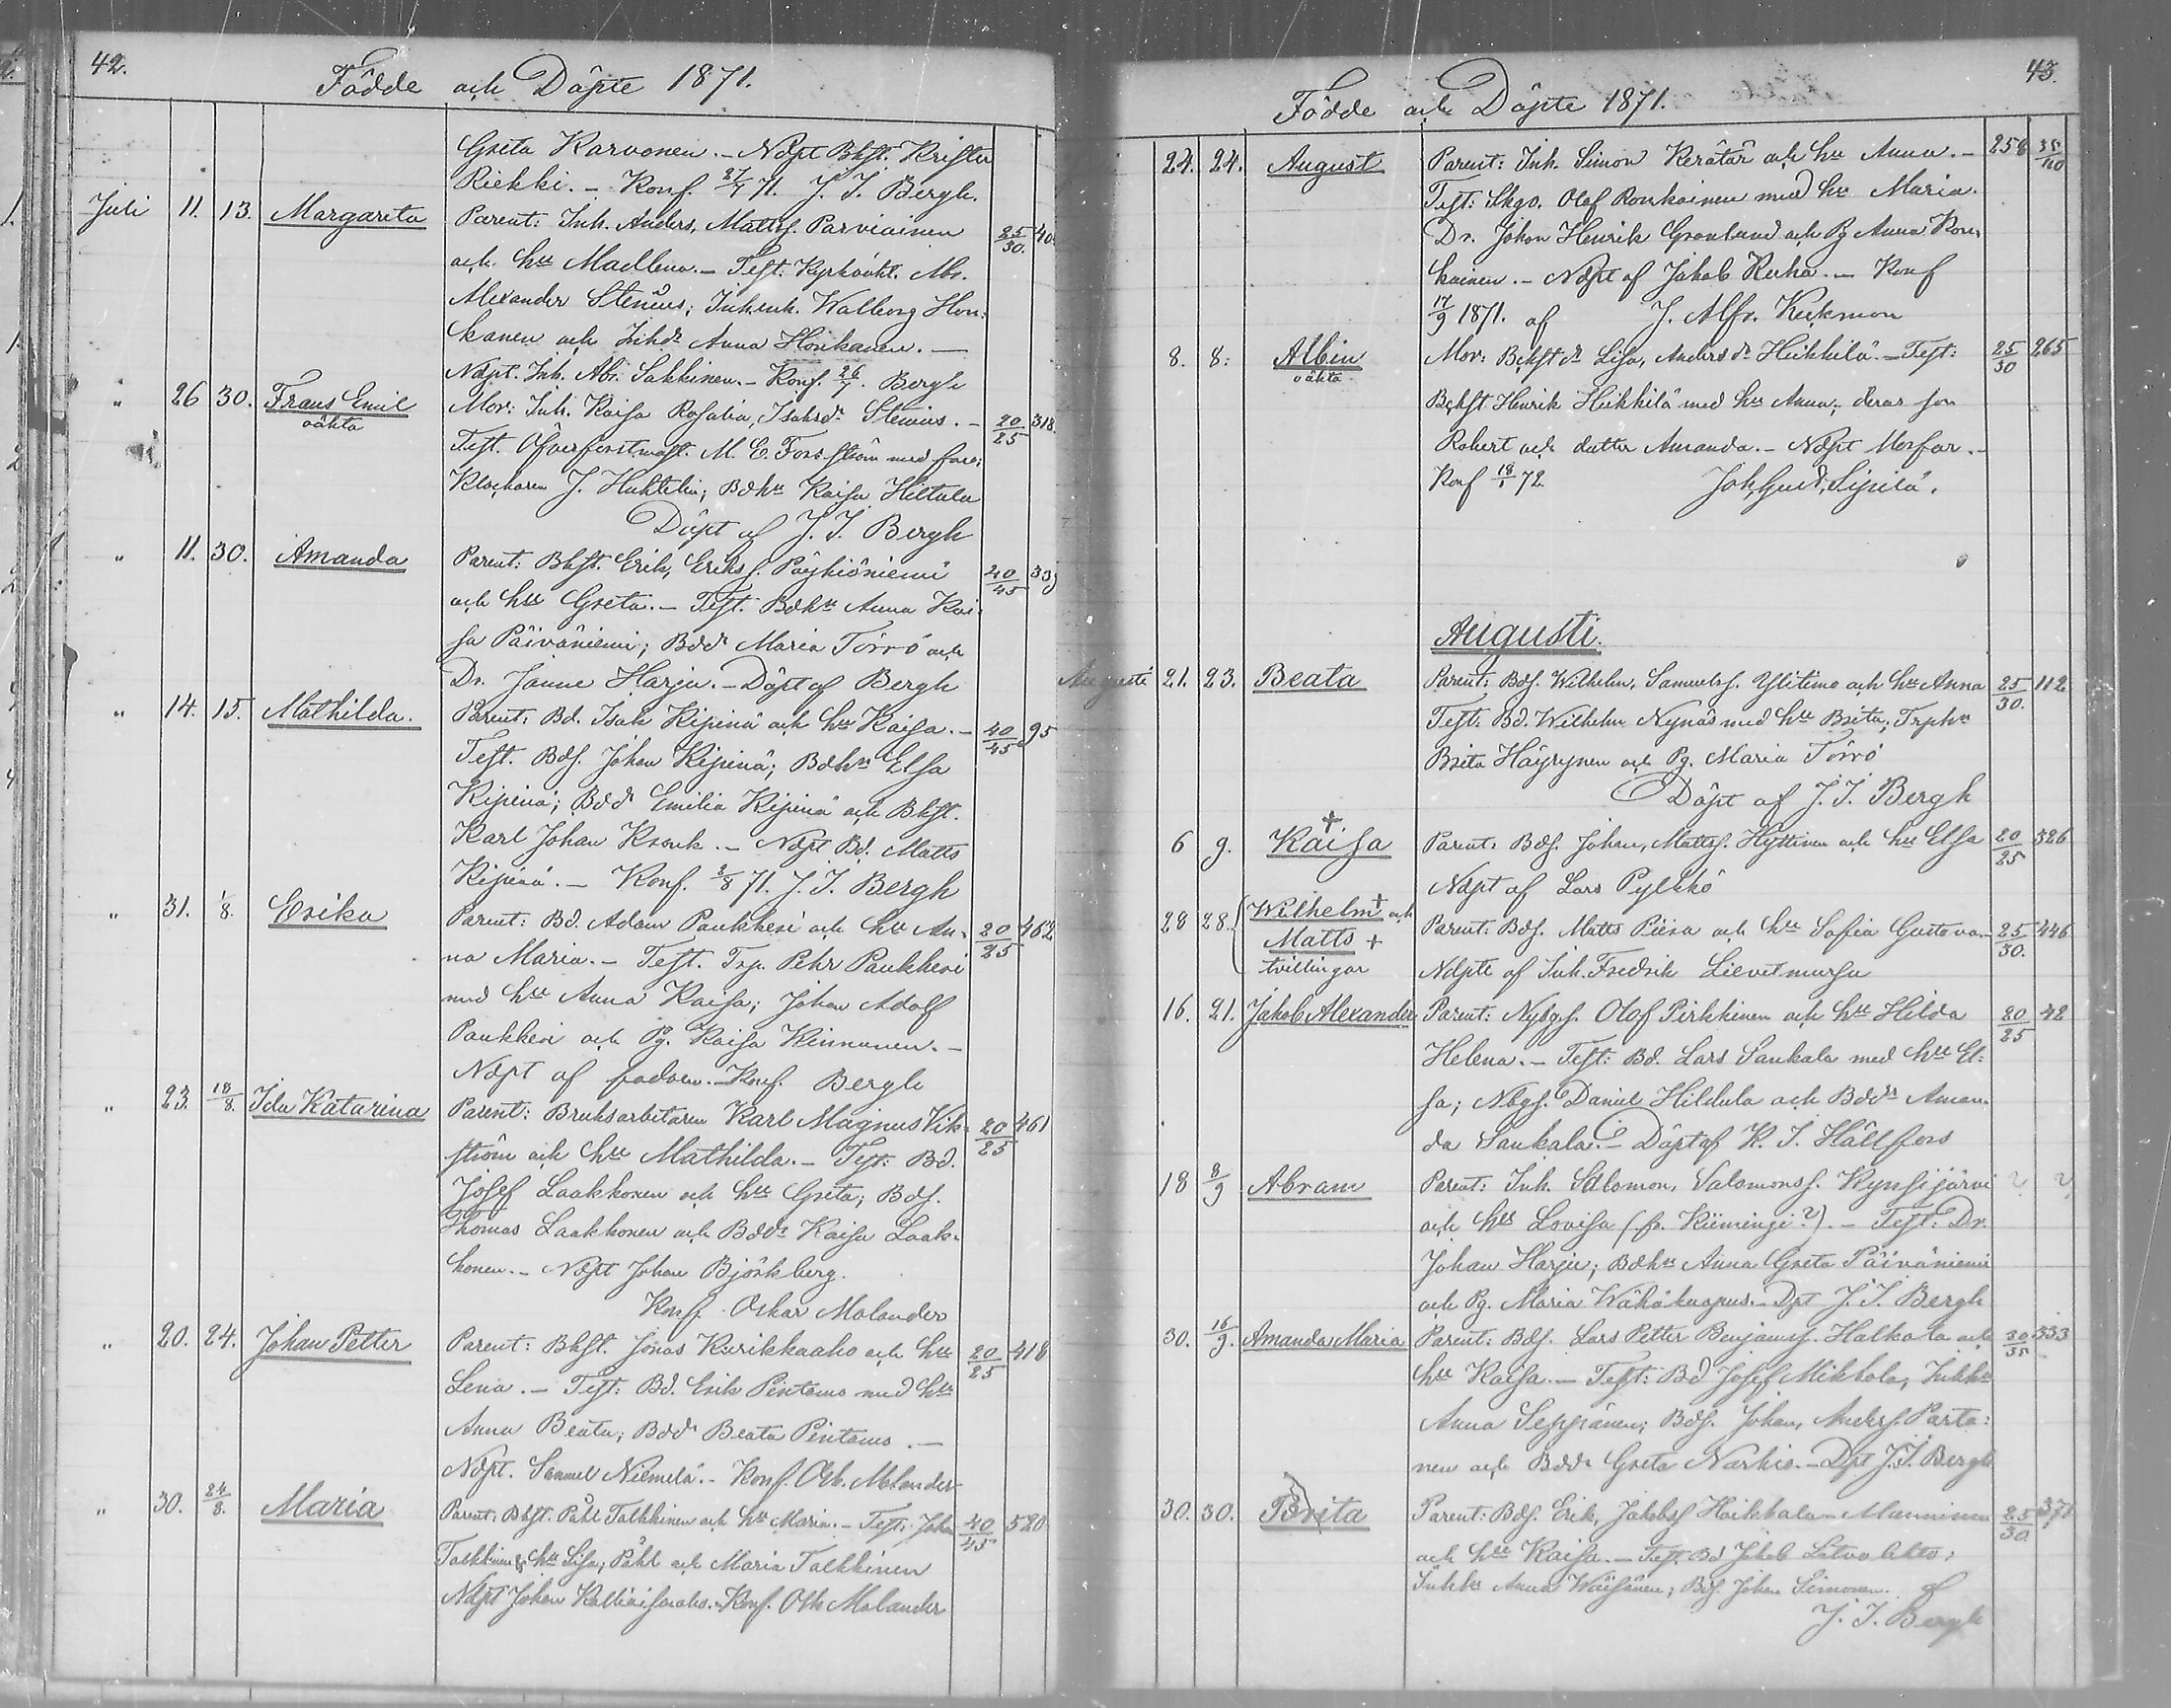 42.
Födde och Döpte 1871.
Greta Karvonen. - Ndpt Bhst. Krister
Riekki. - Konf. 27/7 71. J. I. Bergh.
Juli 11. 13. Margareta Parent: Inh. Anders, Mattss. Parviainen 25/30. 40.
och hu Madlena. - Test: Kyrkovkt. Abr.
Alexander Stenius; Inh.enk. Walborg Hon-
kanen och Inhdr Anna Honkanen. -
Ndpt. Inh. Abr. Sakkinen. - Konf. 26/7. Bergh
" 26 30. Frans Emil Mor: Inh. Kaisa Rosalia, Isaksdr Stenius. - 20/25 318.
oäkta
Test. Öfverforstmast. M. E. Forsström med fru;
Klockaren J. Huhtelin; Bdhu Kaisa Hiltula
Döpt af J. I. Bergh
" 11. 30. Amanda Parent: Bhst. Erik, Erikss. Pöykiöniemi 40/45 339
och hu Greta. - Test. Bdhu Anna Kai-
sa Päiväniemi; Bddr Maria Törrö och
Dr. Janne Harju. - Döpt af Bergh
" 14. 15. Mathilda. Parent: Bd. Isak Kipinä och hu Kaisa. - 40/45 95
Test. Bds. Johan Kipinä; Bdhu Elsa
Kipinä; Bddr Emilia Kipinä och Bhst.
Karl Johan Kronk. - Ndpt Bd. Matts
Kipinä. - Konf. 2/8 71. J. I. Bergh
" 31. 1/8. Erika Parent: Bd. Adam Paukkeri och hu An- 20/25 462
na Maria. - Test. Trp. Pehr Paukkeri
med hu Anna Kaisa; Johan Adolf
Paukkeri och Pg. Kaisa Kinnunen. -
Ndpt af fadren. - Konf. Bergh
" 23. 18/8. Ida Katarina Parent: Bruksarbetaren Karl Magnus Vik- 20/25 461
ström och hu Mathilda. - Test: Bd.
Josef Laakkonen och hu Greta; Bds.
Thomas Laakkonen och Bddr Kaisa Laak-
konen. - Ndpt Johan Björkberg.
Konf. Oskar Molander
" 20. 24. Johan Petter Parent: Bhst. Jonas Kurikkaaho och hu 20/25 418
Lena. - Test: Bd. Erik Pintamo med hu
Anna Beata; Bddr Beata Pintamo. -
Ndpt. Samuel Niemelä. - Konf. Osk. Molander
" 30. 24/8. Maria Parent: Bhst. Påhl Talkkinen och hu Maria. - Test: Johan 40/45 520
Talkkinen hu Lisa; Påhl och Maria Talkkinen
Ndpt Johan - Konf. Osk Molander
43.
Födde och Döpte 1871.
24. 24. August Parent: Inh. Simon Kerätär och hu Anna. - 256 35/40
Test: Skgo. Olof Ronkainen med hu Maria.
Dr. Johan Henrik Grönlund och Pg Anna Ron-
kainen. - Ndpt af Jakob Kerha. - Konf
17/9 1871. af J. Alfr. Keckman
8. 8. Albin Mor: Bckst dr Lisa, Andersdr Heikkilä. - Test: 25/30 265
oäkta
Bckst. Henrik Heikkilä med hu Anna; deras son
Robert och dotter Amanda. - Ndpt Morfar. -
Konf 18/1 72. Joh. Gust. Sipilä.
Augusti.
Augusti 21. 23. Beata Parent: Bds. Wilhelm, Samuelss. Ylitimo och hu Anna 25/30. 112
Test: Bd. Wilhelm Nynäs med hu Brita; Trphu
Brita Häyrynen och Pg. Maria Törrö
Döpt af J. I. Bergh
6 9. + Kaisa Parent: Bds. Johan, Mattss. Hyttinen och hu Elsa 20/25 326
Ndpt af Lars Pylkkö
28 28. Wilhelm + och
Matts + Parent: Bds. Matts Piira och hu Sofia Gustava. - 25/30. 446
tvillingar Ndpte af Inh. Fredrik Lievetmursu
16. 21. Jakob Alexander Parent: Nybgs. Olof Pirkkinen och hu Hilda 20/25 42
Helena. - Test: Bd. Lars Sankala med hu El-
sa; Nbgs. Daniel Hildula och Bddr Aman-
da Sankala. - Döpt af K. I. Hällfors
18 8/9 Abram Parent: Inh. Salomon, Salomonss. Kynsijärvi ? ?
och hu Lovisa (fr. Kiimingi?). - Test: Dr.
Johan Harju; Bdhu Anna Greta Päiväniemi
och Pg. Maria Wähäkuopus. - Dpt J. I. Bergh
30. 16/9. Amanda Maria Parent: Bds. Lars Petter Benjamss. Halkola och 30/35 353
hu Kaisa. - Test: Bd Josef Mikkola; Inhhu
Anna Seppänen; Bds. Johan, Anderss. Parta-
nen och Bddr Greta Narhio. - Dpt J. I. Bergh
30. 30. Brita Parent: Bds. Erik, Jakobss Heikkala - Manninen 25/30 371
och hu Kaisa. - Test. Bd Jakob Latvalehto;
Inhhu Anna Wäisänen; Bds. Johan Simonen. af
J. I. Bergh